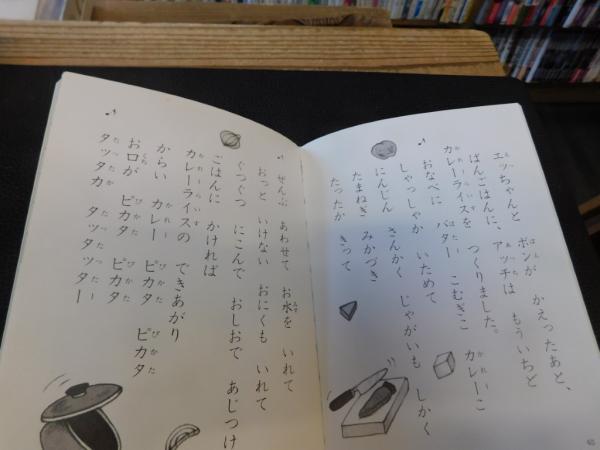 エッちゃんと ボンが かえったあと、
ばんごはんに、 アッチは もういちど
カレーライスを つくりました。
おなべに バター こむぎこ カレーこ
しゃっしゃか いためて
にんじん さんかく じゃがいも しかく
たまねぎ みかづき
たったか きって
ぜんぶ あわせて お水を いれて
おっと いけない おにくも いれて
ぐつぐつ にこんで おしおで あじつけ
ごはんに かければ
カレーライスの できあがり
からい カレー ピカタ
お口が ピカタ ピカタ ピカタ
タッタカ タッタッター